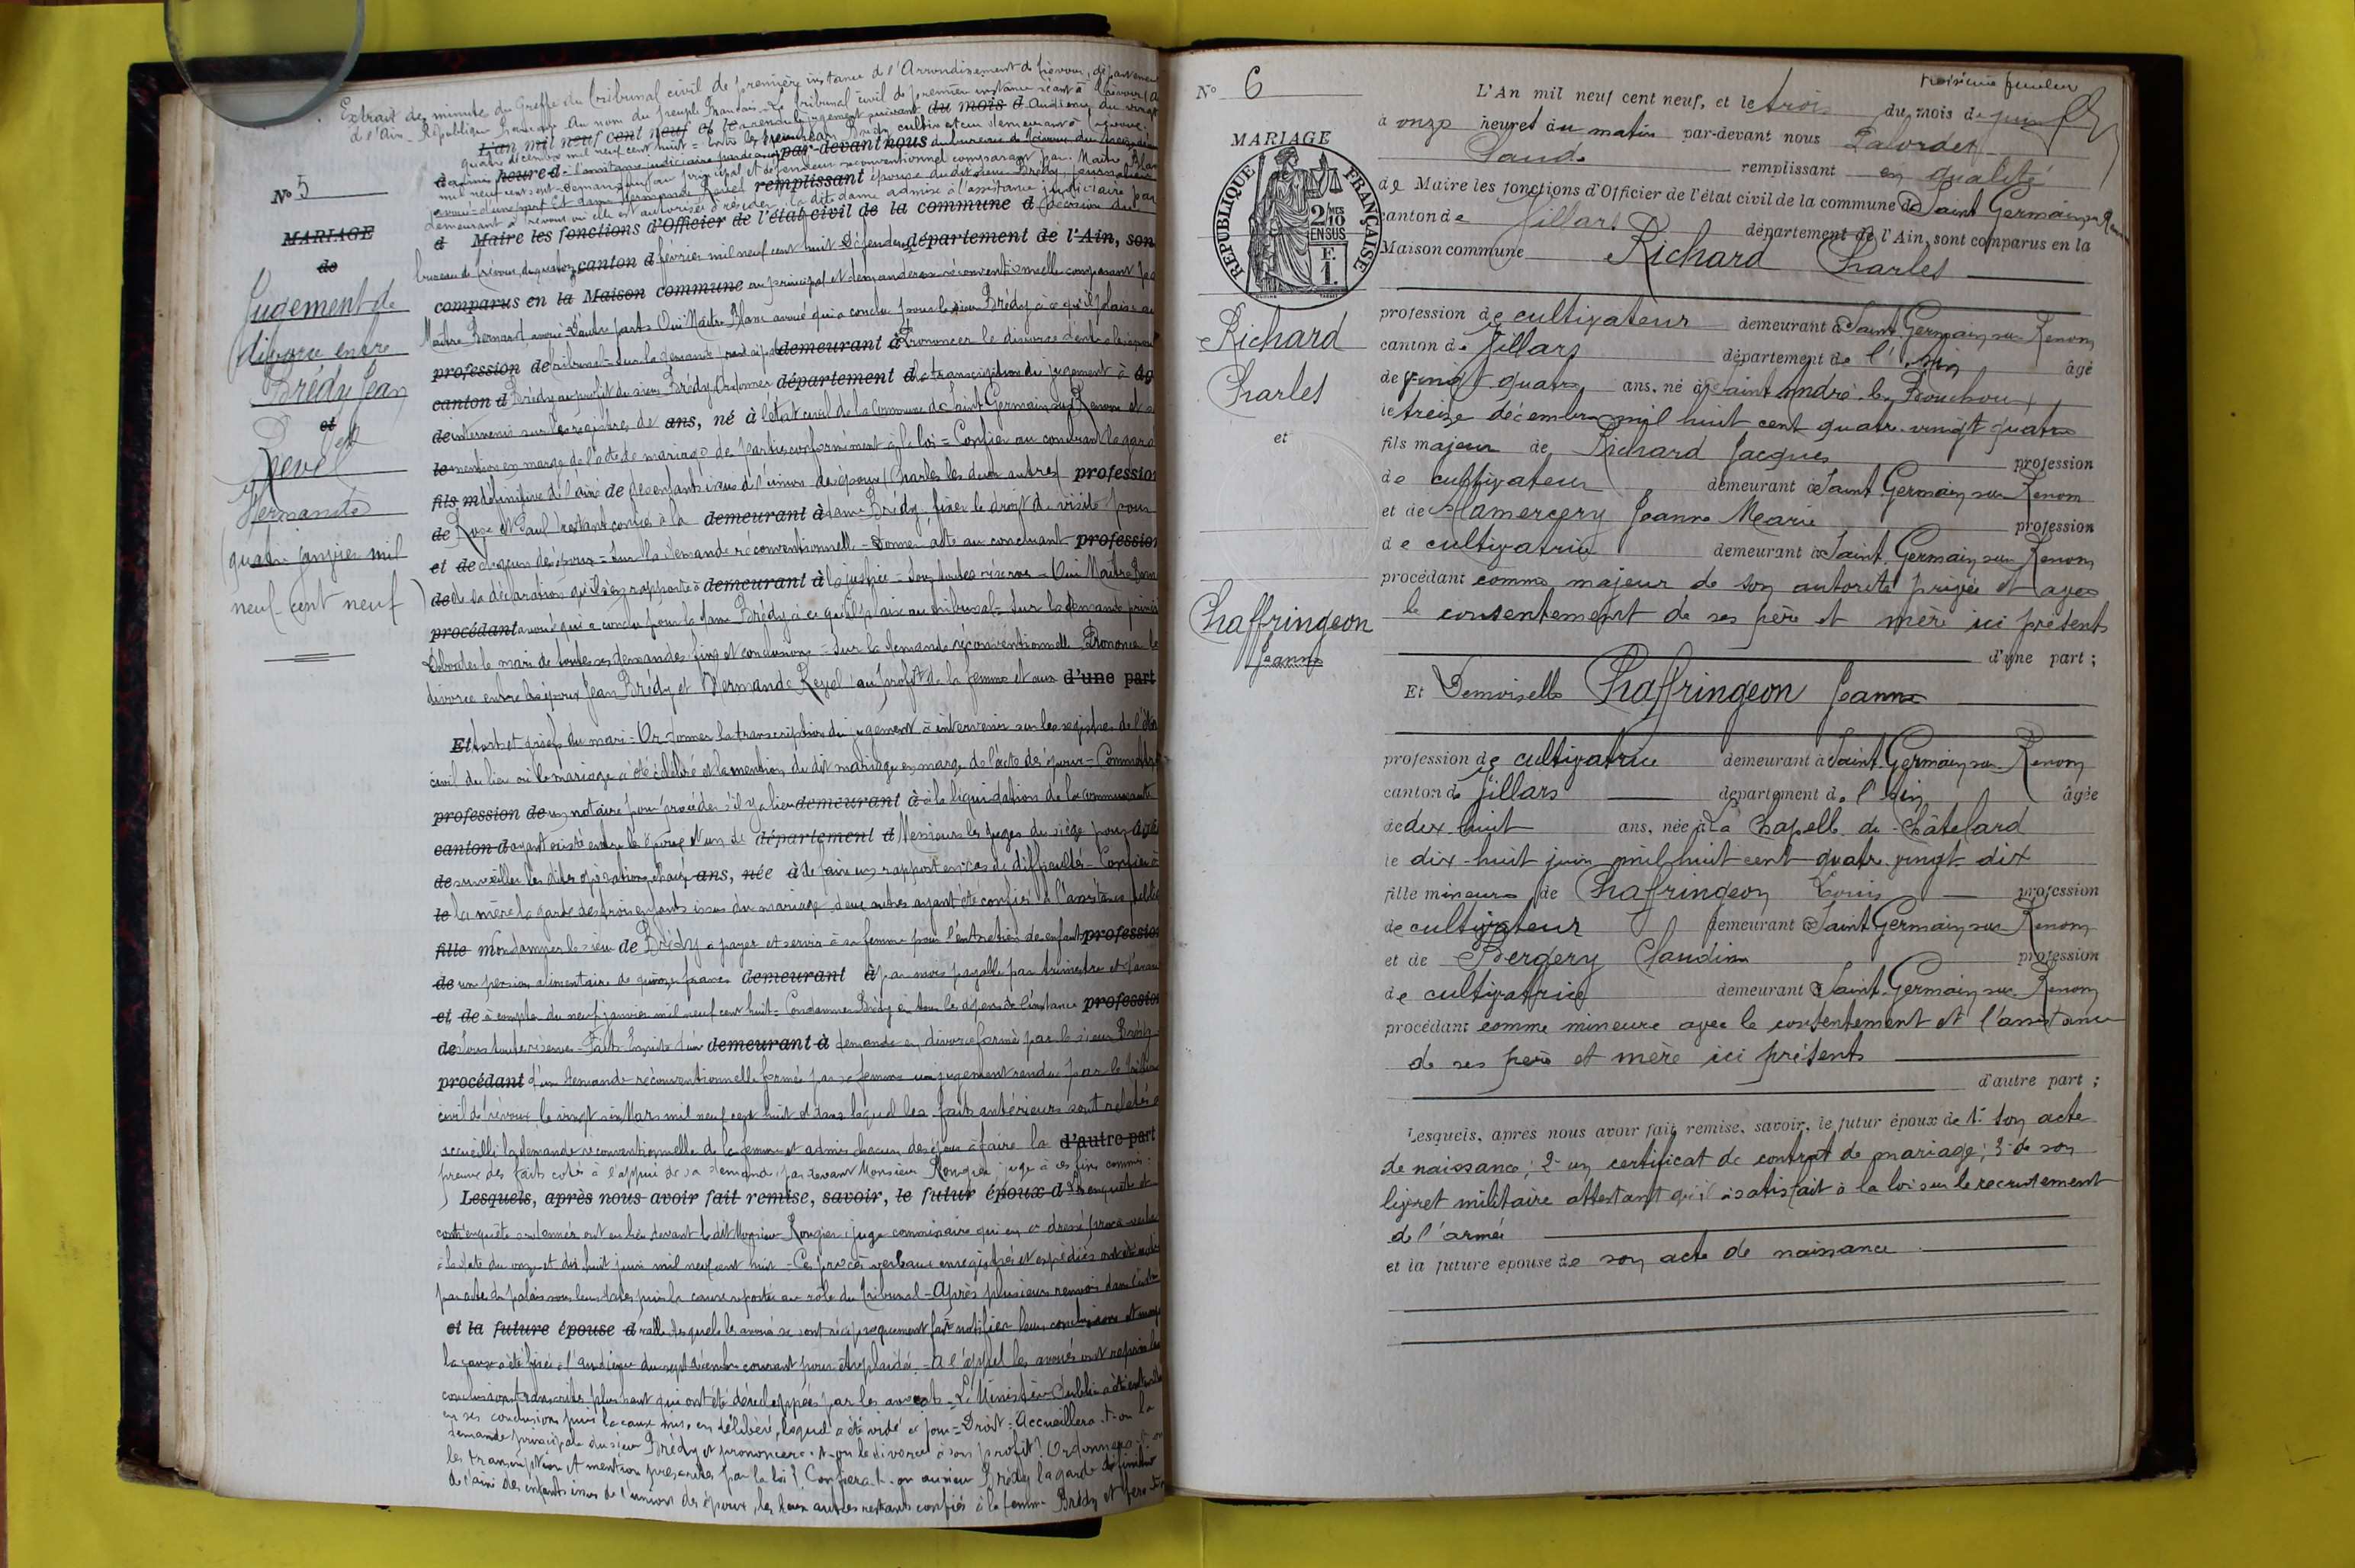 Extrait des minutes du Greffe du Tribunal civil de première instance de l'Arrondissement de Trévoux, département
de l'Ain - République Française Au nom du Peuple Français - Le Tribunal civil de première instance séant à Trévoux
L'an mil neuf cent neuf et le rendu le jugement suivant du mois d audience du vingt
quatre décembre mil neuf cent huit = Entre le sieur Jean Brédy cultivateur demeurant à
par-devant nous
heure d
remplissant
N° 5
MARIAGE
de
Jugement de
divorce entre
Brédy Jean
et
Revel
Hermande
(quatre janvier mil
neuf-cent neuf)
demeurant à Trévoux où elle est autorisée à résider, la dite dame admise à l'assistance judiciaire par
d Maire les fonctions d'Officier de l'état civil de la commune d décision du
bureau de Trévoux du canton d février mil neuf cent huit Défenderesse département de l'Ain, son
comparus en la Maison commune au principal et demanderesse réconventionnelle comparant par
Maître Bernard avoué d'autre part = Ouï Maître Blanc avoué qui a conclu pour le sieur Brédy à ce qu'il plaise au
profession de tribunal = Sur la demande principale demeurant à Prononcer le divorce d'entre les époux
canton d Brédy au profit du sieur Brédy Ordonner département d la transcription du jugement à âg
de intervenir sur les registres de ans, né à l'état civil de la Commune de Saint Germain sur Renom et
le mention en marge de l'acte de mariage de parties conformément à la loi = Confier au concluant la garde
fils m définitive de l'aîné de des enfants issus de l'union des époux (Charles les deux autres profession
de Rose et Paul) restant confiés à la demeurant à dame Brédy, fixer le droit de visite pour
et de chacun des époux = Sur la demande réconventionnelle - Donner acte au concluant profession
de de sa déclaration qu'il s'en rapporte à demeurant à la justice = Sous toutes réserves = Ouï Maître
procédant avoué qui a conclu pour la dame Brédy à ce qu'il plaise au tribunal = Sur la demande
Débouter le mari de toutes ses demandes fins et conclusions = Sur la demande réconventionnelle Prononcer le
divorce entre les époux Jean Brédy et Hermande Revel au profit de la femme et aux d'une part
Et torts et griefs du mari - Ordonner la transcription du jugement à intervenir sur les registres de l'état
civil du lieu où le mariage a été célébré et la mention du dit mariage en marge de l'acte des époux - Commettre
profession de un notaire pour procéder s'il y a lieu demeurant à à la liquidation de la communauté
canton d ayant existé entre les époux et un de département d Messieurs les juges du siège pour âgé
de surveiller les dites opérations et ans, née à de faire un rapport en cas de difficultés - Confier à
le la mère la garde des trois enfants issus du mariage deux autres ayant été confiés à l'assistance publique
fille m Condamner le sieur de Brédy à payer et servir à sa femme pour l'entretien des enfants profession
de une pension alimentaire de quinze francs demeurant à par mois payable par trimestre et d'avance
et de à compter du neuf janvier mil neuf cent huit = Condamner Brédy en tous les dépens de l'instance profession
de Sous toutes réserves - Faits Ensuite d'un demeurant à demande en divorce formée par le sieur Brédy
procédant d'une demande réconventionnelle formée par sa femme un jugement rendu par le tribunal
civil de Trévoux le vingt six Mars mil neuf cent huit et dans lequel les faits antérieurs sont relatés a
accueilli la demande réconventionnelle de la femme et admis chacun des époux à faire la d'autre part
preuve des faits cotés à l'appui de sa demande par devant Monsieur Rougier juge à ces fins commis.
Lesquels, après nous avoir fait remise, savoir, le futur époux d enquête et
contr'enquête ordonnés ont eu lieu devant le dit Monsieur Rougier juge commissaire qui en a dressé procès verbal
à la date du onze et dix huit juin mil neuf cent huit - Ces procès verbaux enregistrés et expédiés ont été
par acte du palais sous leurs dates puis la cause reportée au rôle du Tribunal - Après plusieurs renvois dans
et la future épouse d lesquels les avoués se sont réciproquement fait notifier leurs conclusions
la cause a été fixée à l'audience du sept décembre courant pour être plaidée - A l'appel les avoués ont repris les
conclusions transcrites plus haut qui ont été développées par les avocats - Le Ministère Public a été entendu
en ses conclusions puis la cause mise en délibéré, lequel a été vidé ce jour = Droit = Accueillera-t-on la
demande principale du sieur Brédy et prononcera-t-on le divorce à son profit? Ordonnera-t-on
les transcription et mention prescrites par la loi? Confiera-t-on au sieur Brédy la garde définitive
de l'aîné des enfants issus de l'union des époux, les deux autres restants confiés à la femme Brédy et
N° 6
troisième feuillet
MARIAGE
RÉPUBLIQUE FRANÇAISE
2/10
EN SUS
1 F.
Richard
Charles
et
Chaffringeon
Jeanne
L'An mil neuf cent neuf, et le trois du mois de juin
à onze heures du matin par-devant nous Laborder
Claude remplissant en qualité
de Maire les fonctions d'Officier de l'état civil de la commune de Saint Germain sur Renom
canton de Villars département de l'Ain, sont comparus en la
Maison commune Richard Charles
profession de cultivateur demeurant à Saint Germain sur Renom
canton de Villars département de l'Ain âgé
de vingt quatre ans, né à Saint André-le-Bouchoux
le treize décembre mil huit cent quatre-vingt quatre
fils majeur de Richard Jacques profession
de cultivateur demeurant à Saint Germain sur Renom
et de Mamergery Jeanne Marie profession
de cultivatrice demeurant à Saint Germain sur Renom
procédant comme majeur de son autorité privée et avec
le consentement de ses père et mère ici présents
d'une part ;
Et Demoiselle Chaffringeon Jeanne
profession de cultivatrice demeurant à Saint Germain sur Renom
canton de Villars département de l'Ain âgée
de dix-huit ans, née à La Chapelle-du-Châtelard
le dix-huit juin mil huit cent quatre vingt dix
fille mineure de Chaffringeon Louis profession
de cultivateur demeurant à Saint Germain sur Renom
et de Bergery Claudine profession
de cultivatrice demeurant à Saint Germain sur Renom
procédant comme mineure avec le consentement et l'assistance
de ses père et mère ici présents
d'autre part ;
Lesquels, après nous avoir fait remise, savoir, le futur époux de 1° son acte
de naissance; 2° un certificat de contrat de mariage; 3° de son
livret militaire attestant qu'il a satisfait à la loi sur le recrutement
de l'armée
et la future épouse de son acte de naissance